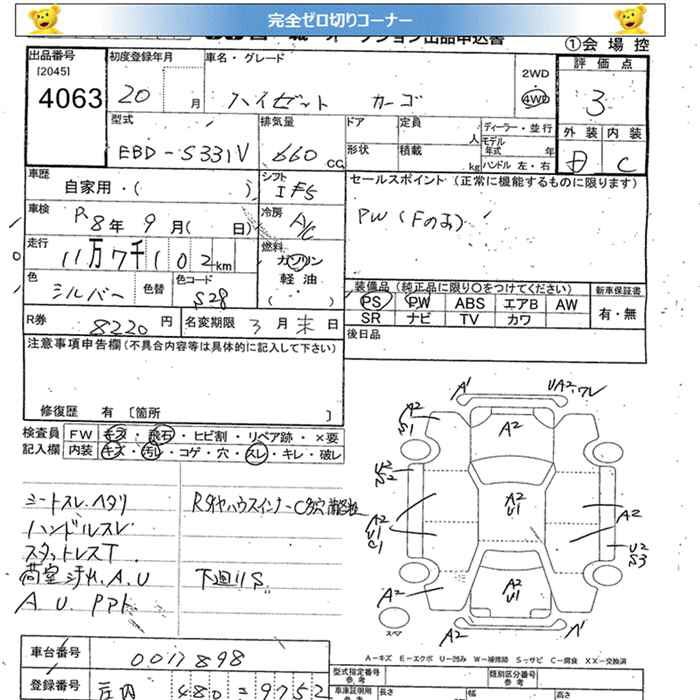 完全ゼロ切りコーナー
オークション出品申込書
①会 場 控
出品番号
[2045]
4063
初度登録年月
20 月
車名・グレード
ハイゼット カーゴ
2WD
4WD
評 価 点
3
外 装 内 装
C
型式
EBD-S331V
排気量
660 CC
ドア 定員 人
形状 積載 kg
ディーラー・並行
モデル年式 年
ハンドル 左・右
車歴
自家用・( )
シフト
IF5
セールスポイント (正常に機能するものに限ります)
PW(Fのみ)
車検
R8年 9月( 日)
冷房
A/C
走行
11万7千102km
燃料
ガソリン
軽 油
( )
色
シルバー
色替
色コード
S28
装備品 (純正品に限り○をつけてください)
PS PW ABS エアB AW
SR ナビ TV カワ
新車保証書
有・無
R券
8220円
名変期限 3月末日
後日品
注意事項申告欄(不具合内容等は具体的に記入して下さい)
修復歴 有 [箇所 ]
検査員 FW キズ・飛石・ヒビ割・リペア跡・×要
記入欄 内装 キズ・汚レ・コゲ・穴・スレ・キレ・破レ
シートスレ.ヘタリ
ハンドルスレ
スタットレスT
荷室汚れ.A.U
A U PPト
RタイヤハウスインナーC多穴
下廻りS
A' UA2・ワレ
A2 S1
A2
U2 S2
A2 U1 C1
A2 U1
A2
U2 S3
A2
A2 U1
スペア
A2 A'
A-キズ E-エクボ U-凹み W-補修跡 S-サビ C-腐食 XX-交換済
車台番号
0017898
登録番号
庄内 480 9752
型式指定番号
参考
類別区分番号
参考
車庫証明用
参考
長さ 幅 高さ